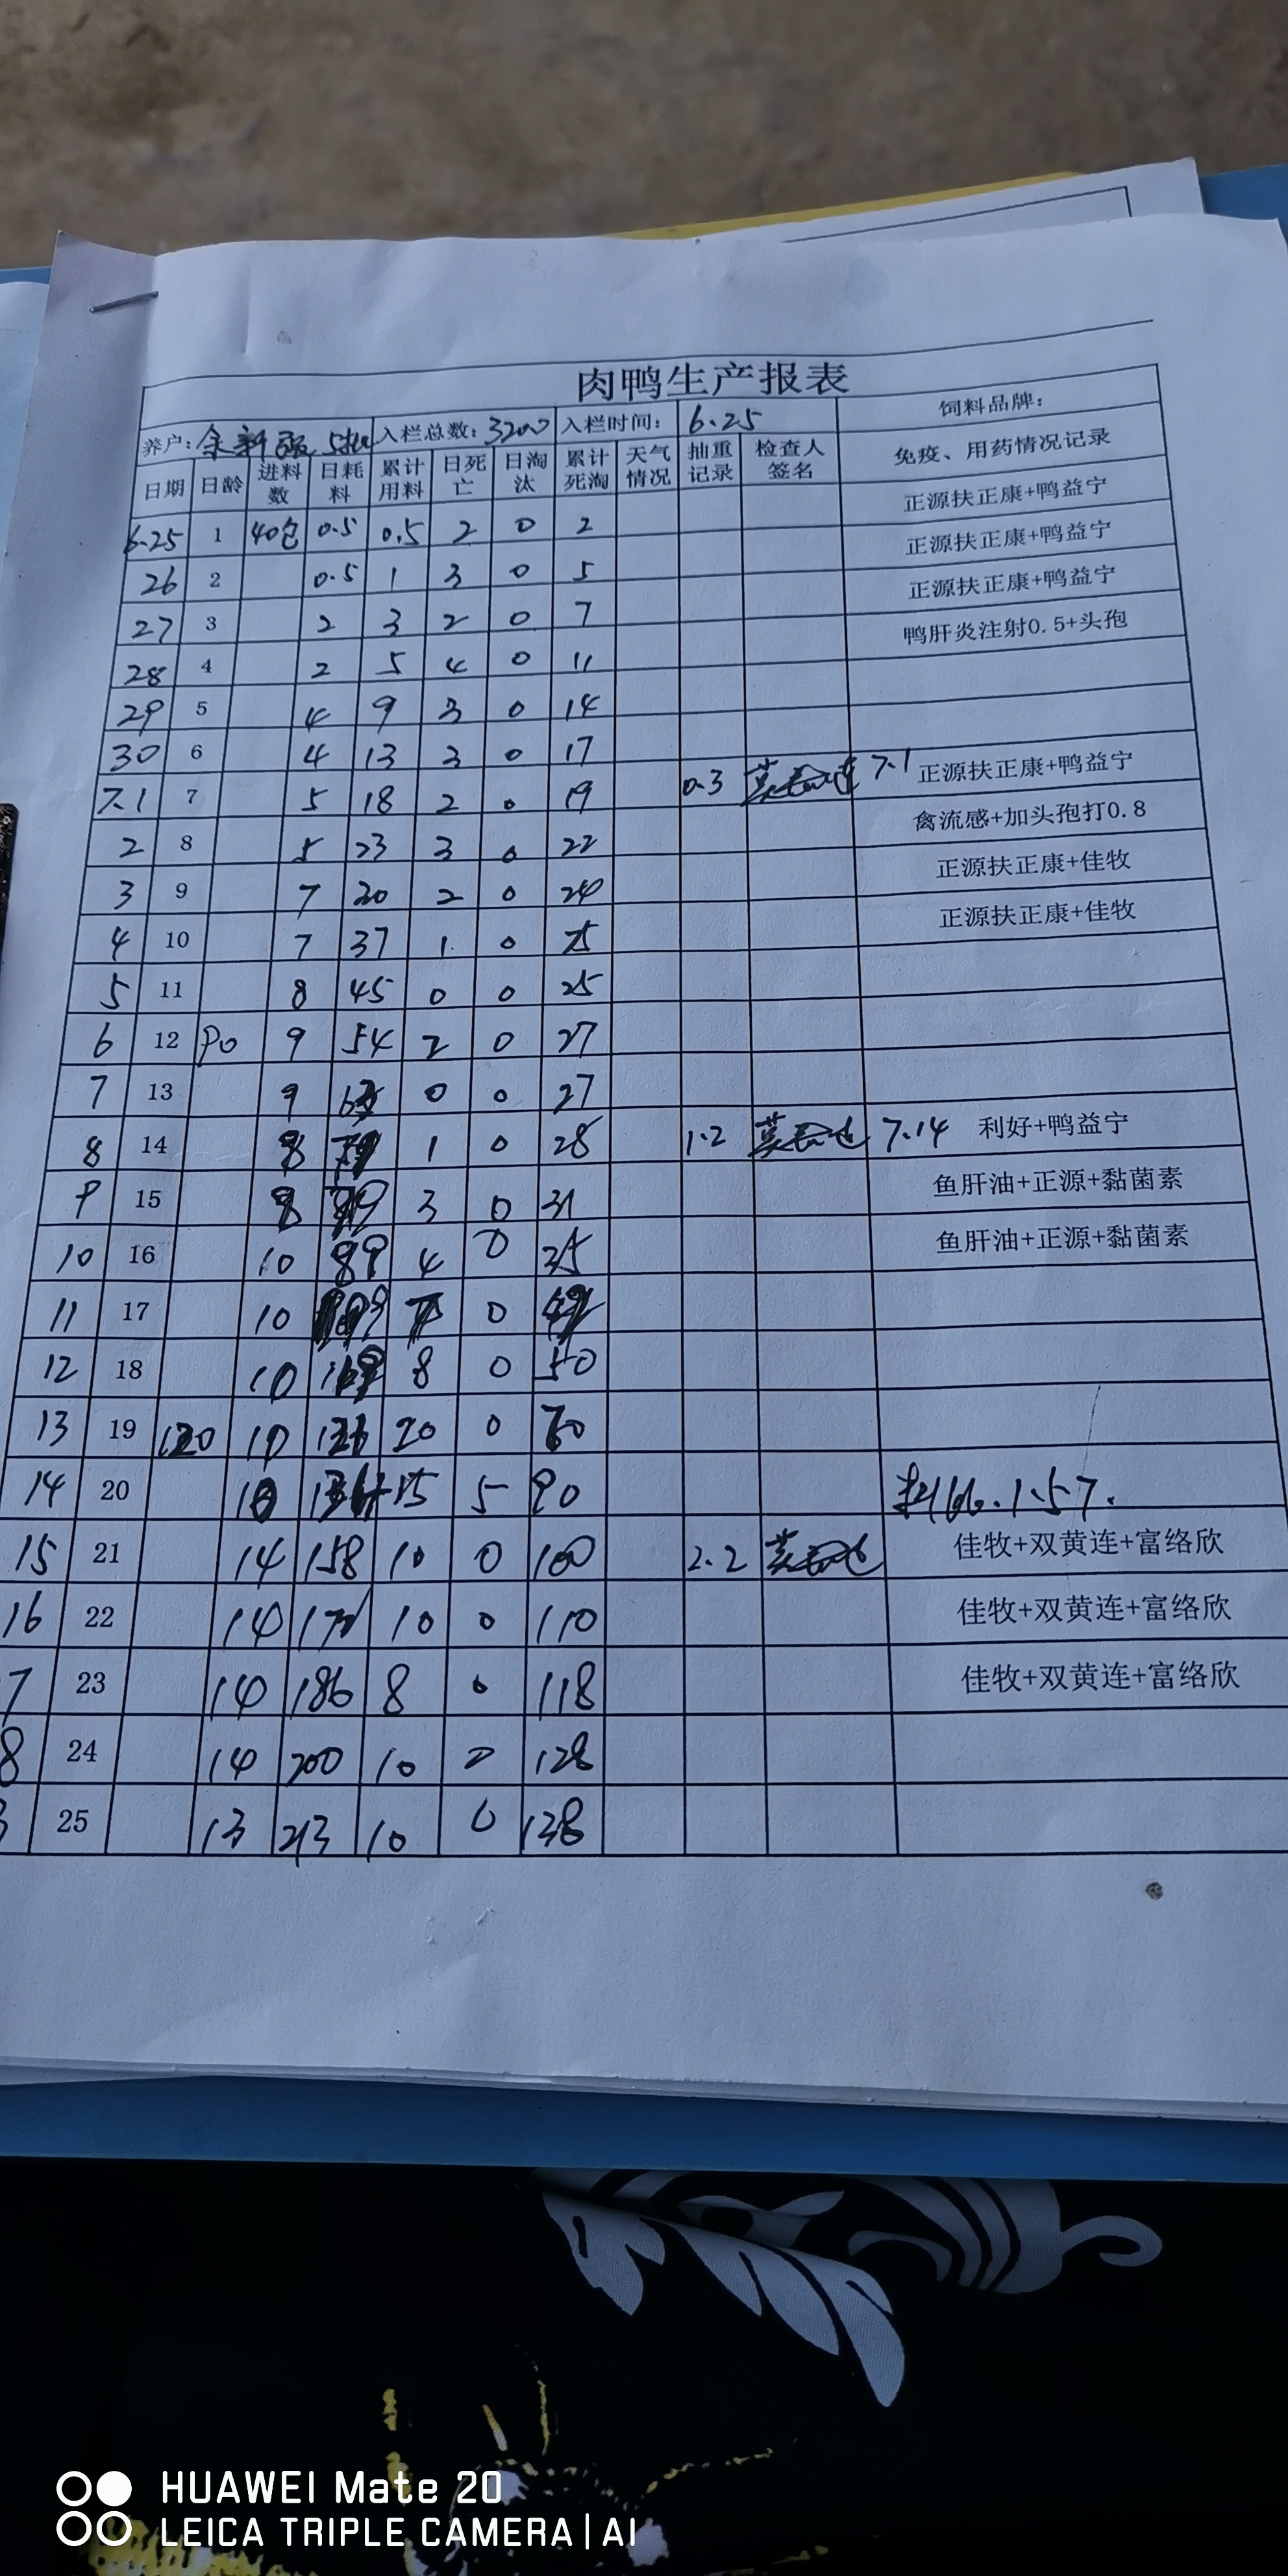 肉鸭生产报表
养户: 余新强 5批 入栏总数: 3200 入栏时间: 6.25 饲料品牌:
日期 日龄 进料数 日耗料 累计用料 日死亡 日淘汰 累计死淘 天气情况 抽重记录 检查人签名 免疫、用药情况记录
6.25 1 40包 0.5 0.5 2 0 2 正源扶正康+鸭益宁
26 2 0.5 1 3 0 5 正源扶正康+鸭益宁
27 3 2 3 2 0 7 正源扶正康+鸭益宁
28 4 2 5 4 0 11 鸭肝炎注射0.5+头孢
29 5 4 9 3 0 14
30 6 4 13 3 0 17
7.1 7 5 18 2 0 19 0.3 7.1 正源扶正康+鸭益宁
2 8 5 23 3 0 22 禽流感+加头孢打0.8
3 9 7 30 2 0 24 正源扶正康+佳牧
4 10 7 37 1 0 25 正源扶正康+佳牧
5 11 8 45 0 0 25
6 12 90 9 54 2 0 27
7 13 9 63 0 0 27
8 14 8 1 0 28 1.2 7.14 利好+鸭益宁
9 15 8 79 3 0 31 鱼肝油+正源+黏菌素
10 16 10 89 4 0 35 鱼肝油+正源+黏菌素
11 17 10 0
12 18 10 8 0 50
13 19 120 10 20 0 70
14 20 10 15 5 90 1.57.
15 21 14 158 10 0 100 2.2 佳牧+双黄连+富络欣
16 22 14 10 0 110 佳牧+双黄连+富络欣
7 23 14 186 8 0 118 佳牧+双黄连+富络欣
8 24 14 200 10 0 128
25 13 213 10 0 138
HUAWEI Mate 20
LEICA TRIPLE CAMERA | AI